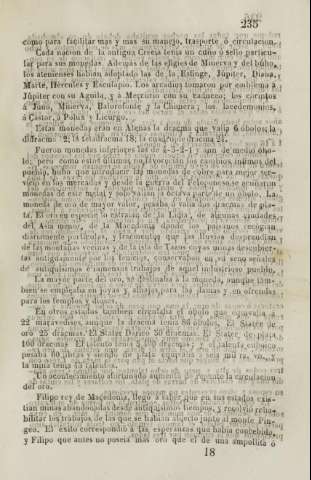 235
como para facilitar mas y mas su manejo, trasporte ó circulacion.
Cada nacion de la antigua Grecia tenia un cuño ó sello particu-
lar para sus monedas. Ademas de las efigies de Minerva y del búho,
los atenienses habian adoptado las de la Esfinge, Júpiter, Diana,
Marte, Hércules y Esculapio. Los arcadios tomaron por emblema á
Júpiter con su Aguila, y a Mercurio con su caduceo; los corintios
á Juno, Minerva, Belorofonte y la Chimera; los lacedemonios,
á Castor, á Polux y Licurgo.
Estas monedas eran en Atenas la dracma que valia 6 óbolos; la
didracma 12; la tridracma 18; la cuadridracma 24.
Fueron monedas inferiores las de 4-3-2-1 y aun de medio óbo-
lo; pero como estas últimas no
pueblo, hubo que introducir las monedas de cobre para mejor ser-
vicio en los mercados y desde la guerra del Peloponeso se acuñaron
monedas de este metal y solo valia la octava parte de un óbolo. La
moneda de oro de mayor valor, pesaba dracmas de pla-
ta. El oro en especie lo estraian de la Lidia, de algunas ciudades
del Asia menor, de la Macedonia donde los paisanos recogian
diariamente partículas, y fragmentos que las lluvias desprendian
de las montañas vecinas y de la isla de Tasos cuyas minas descubier-
tas antiguamente por los fenicios, conservaban en su seno señales
de antiquísimos é inmensos trabajos de aquel industrioso pueblo.
La mayor parte del oro, se destinaba á la moneda, aunque tam-
bien se empleaba en joyas y alhajas para las damas y en ofrendas
para los templos y dioses.
En otros estados tambien circulaba el óbolo que equivalia á
22 maravedises aunque la dracma tenia 86 óbolos. El Stater de
oro 25 dracmas. El Stater Dárico 50 dracmas. El Stater de plata
100 dracmas. El talento tenia 5,100 dracmas; y el talento
pesaba 60 libras y siendo de plata equivalia á seis mil rs. vn. y
la mina tenia
Un acontecimiento aumentó la circulacion
del oro.
Filipo rey de Macedonia, llegó á saber que en sus estados exis-
tian minas abandonadas desde antiquísimos tiempos, y resolvió reha-
bilitar los trabajos de las que se habian abierto junto al monte Pan-
geo. El éxito correspondió á las esperanzas que habia concebido,
y Filipo que antes no poseia mas oro que el de una ampollita ó
18